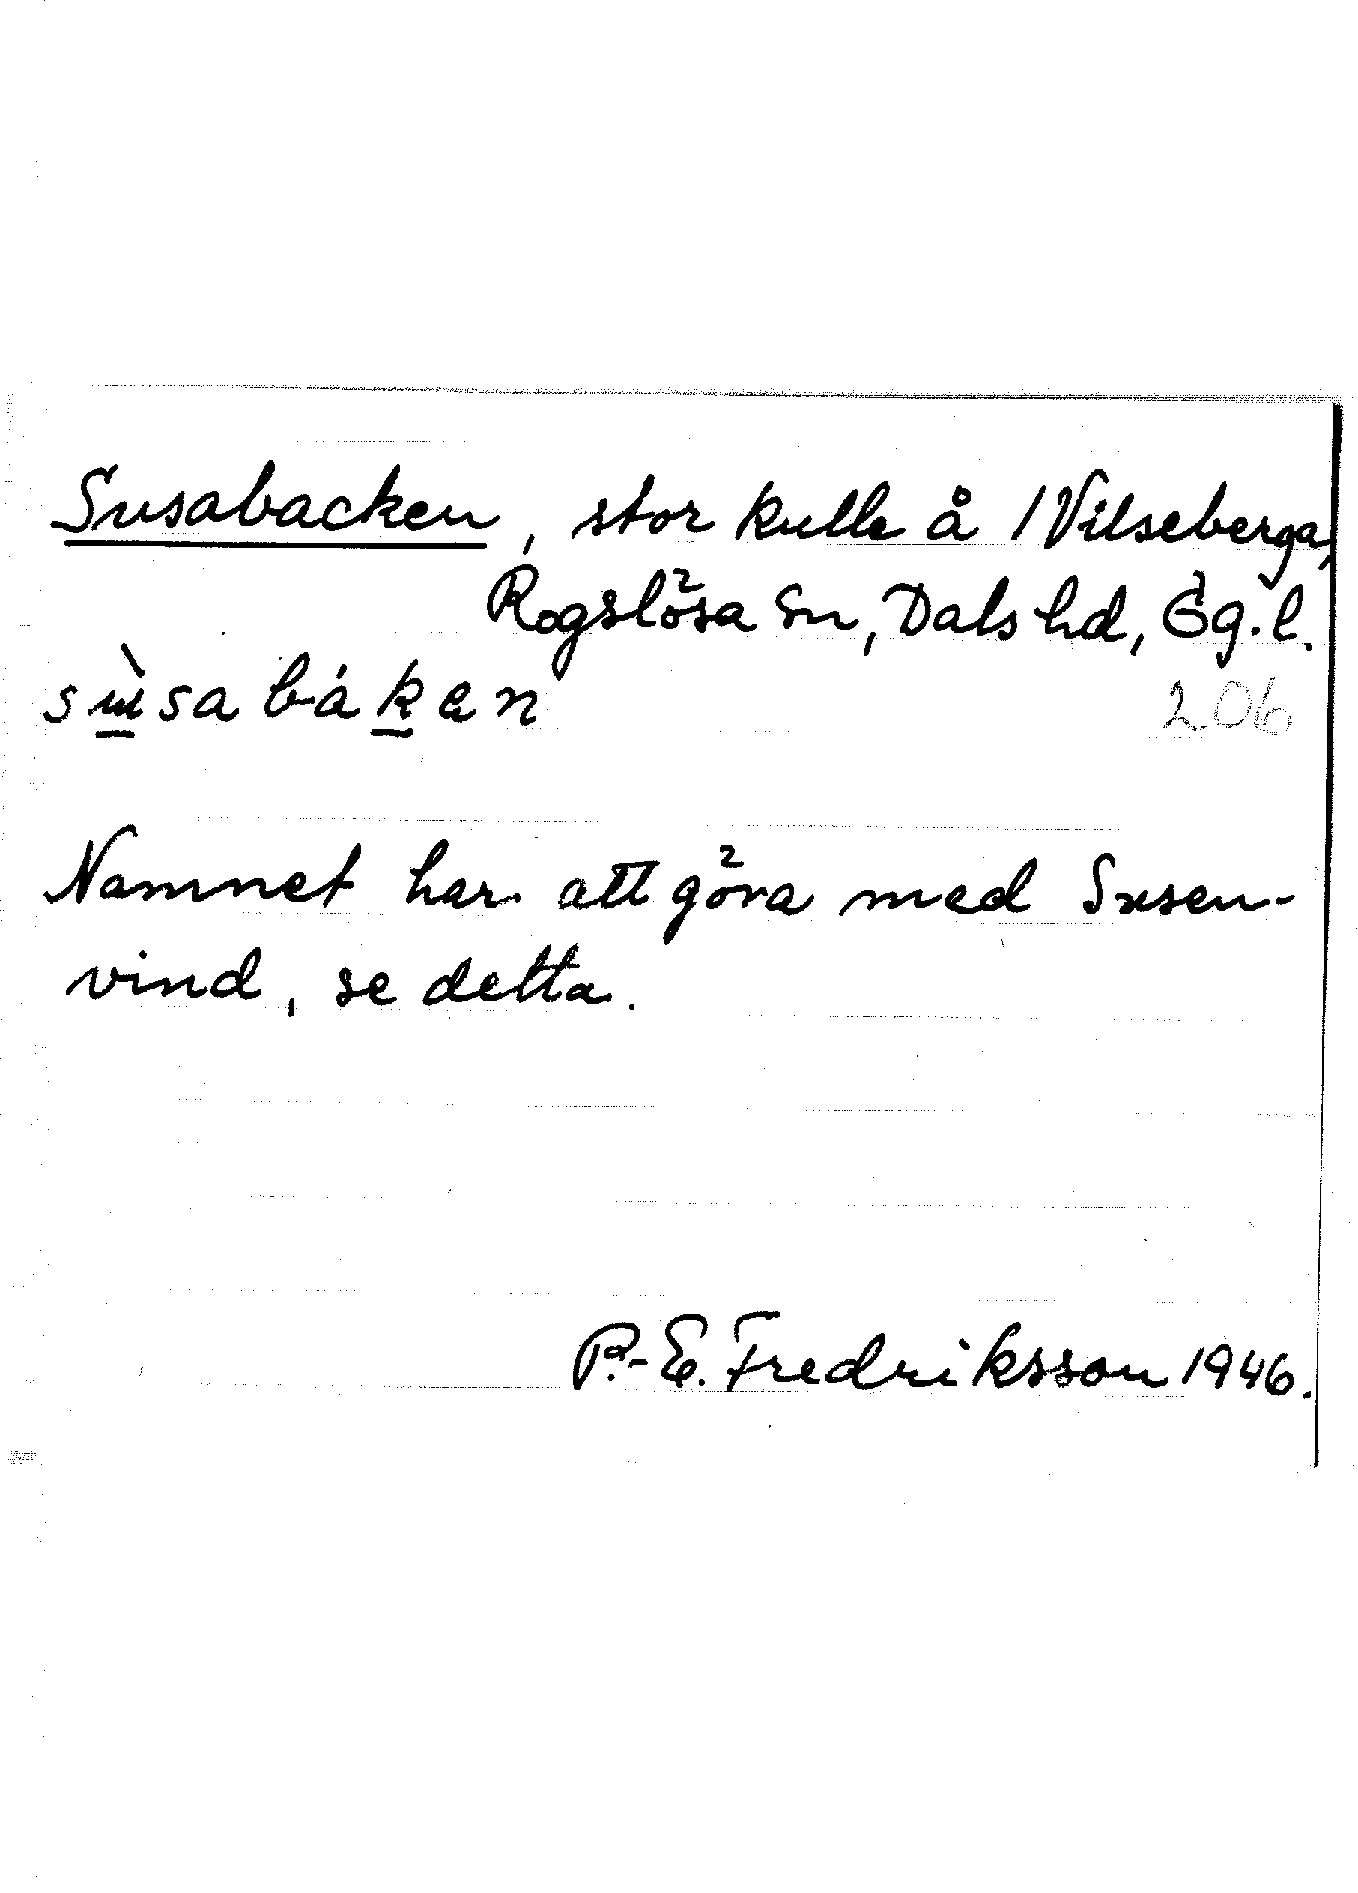 Susabacken, stor kulle å 1 Vilseberga,
Rogslösa sn, Dals hd, Ög.l.
sùsabákan
206
Namnet har att göra med Susen-
vind, se detta.
P.-E. Fredriksson 1946.